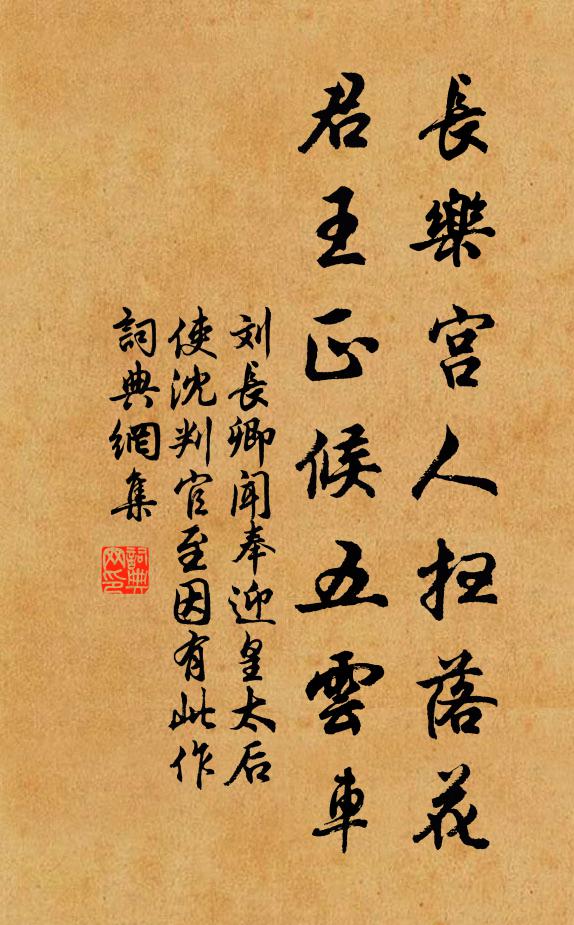 長樂宮人扫落花
君王正候五雲車
刘長卿聞奉迎皇太后
使沈判官至因有此作
詞典網集
詞典
网印